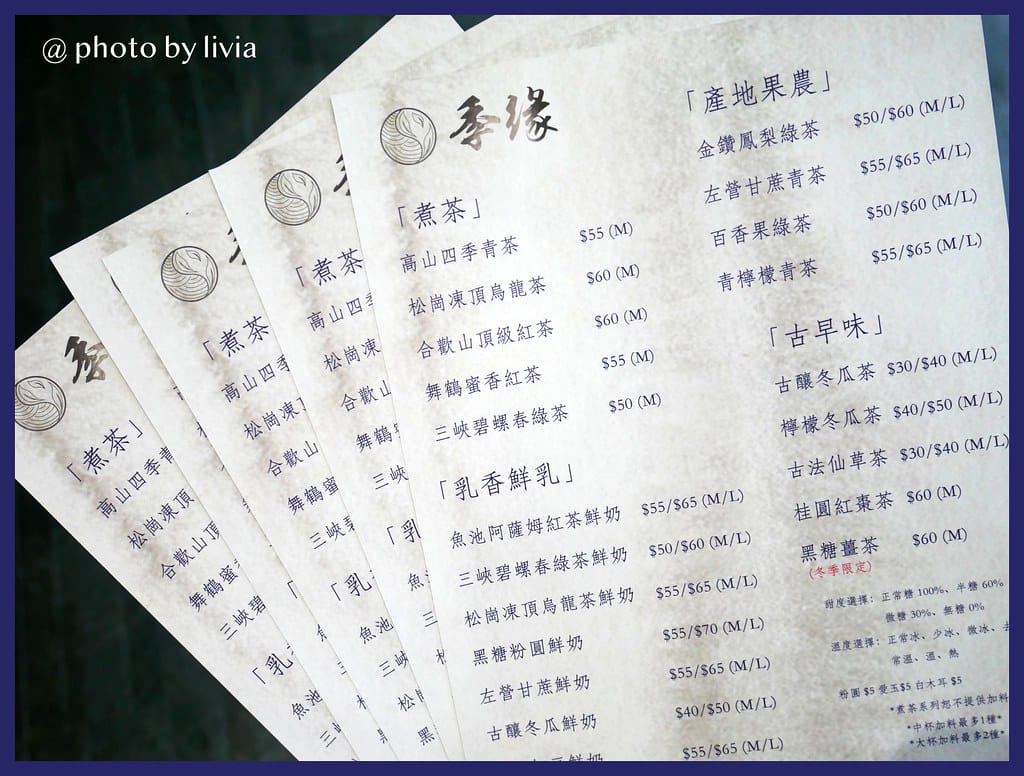 @ photo by livia
季缘
「煮茶」
高山四季青茶 $55 (M)
松崗凍頂烏龍茶 $60 (M)
合歡山頂級紅茶 $60 (M)
舞鶴蜜香紅茶 $55 (M)
三峽碧螺春綠茶 $50 (M)
「乳香鮮乳」
魚池阿薩姆紅茶鮮奶 $55/$65 (M/L)
三峽碧螺春綠茶鮮奶 $50/$60 (M/L)
松崗凍頂烏龍茶鮮奶 $55/$65 (M/L)
黑糖粉圓鮮奶 $55/$70 (M/L)
左營甘蔗鮮奶 $55/$65 (M/L)
古釀冬瓜鮮奶 $40/$50 (M/L)
$55/$65 (M/L)
「產地果農」
金鑽鳳梨綠茶 $50/$60 (M/L)
左營甘蔗青茶 $55/$65 (M/L)
百香果綠茶 $50/$60 (M/L)
青檸檬青茶 $55/$65 (M/L)
「古早味」
古釀冬瓜茶 $30/$40 (M/L)
檸檬冬瓜茶 $40/$50 (M/L)
古法仙草茶 $30/$40 (M/L)
桂圓紅棗茶 $60 (M)
黑糖薑茶 $60 (M)
(冬季限定)
甜度選擇：正常糖 100%、半糖 60%
微糖 30%、無糖 0%
溫度選擇：正常冰、少冰、微冰、去
常溫、溫、熱
粉圓 $5 愛玉$5 白木耳 $5
*煮茶系列恕不提供加料
*中杯加料最多1種*
*大杯加料最多2種*
「煮茶
高山四
松崗凍
合歡山
舞鶴
三峽
「乳
魚
三
松
「煮茶
高山四季
松崗凍
合歡山
舞鶴蜜
三峽碧
「乳
魚池
三峽
松崗
黑
季
「煮茶」
高山四季青
松崗凍頂
合歡山頂
舞鶴蜜
三峽碧
「乳
魚池
三峽